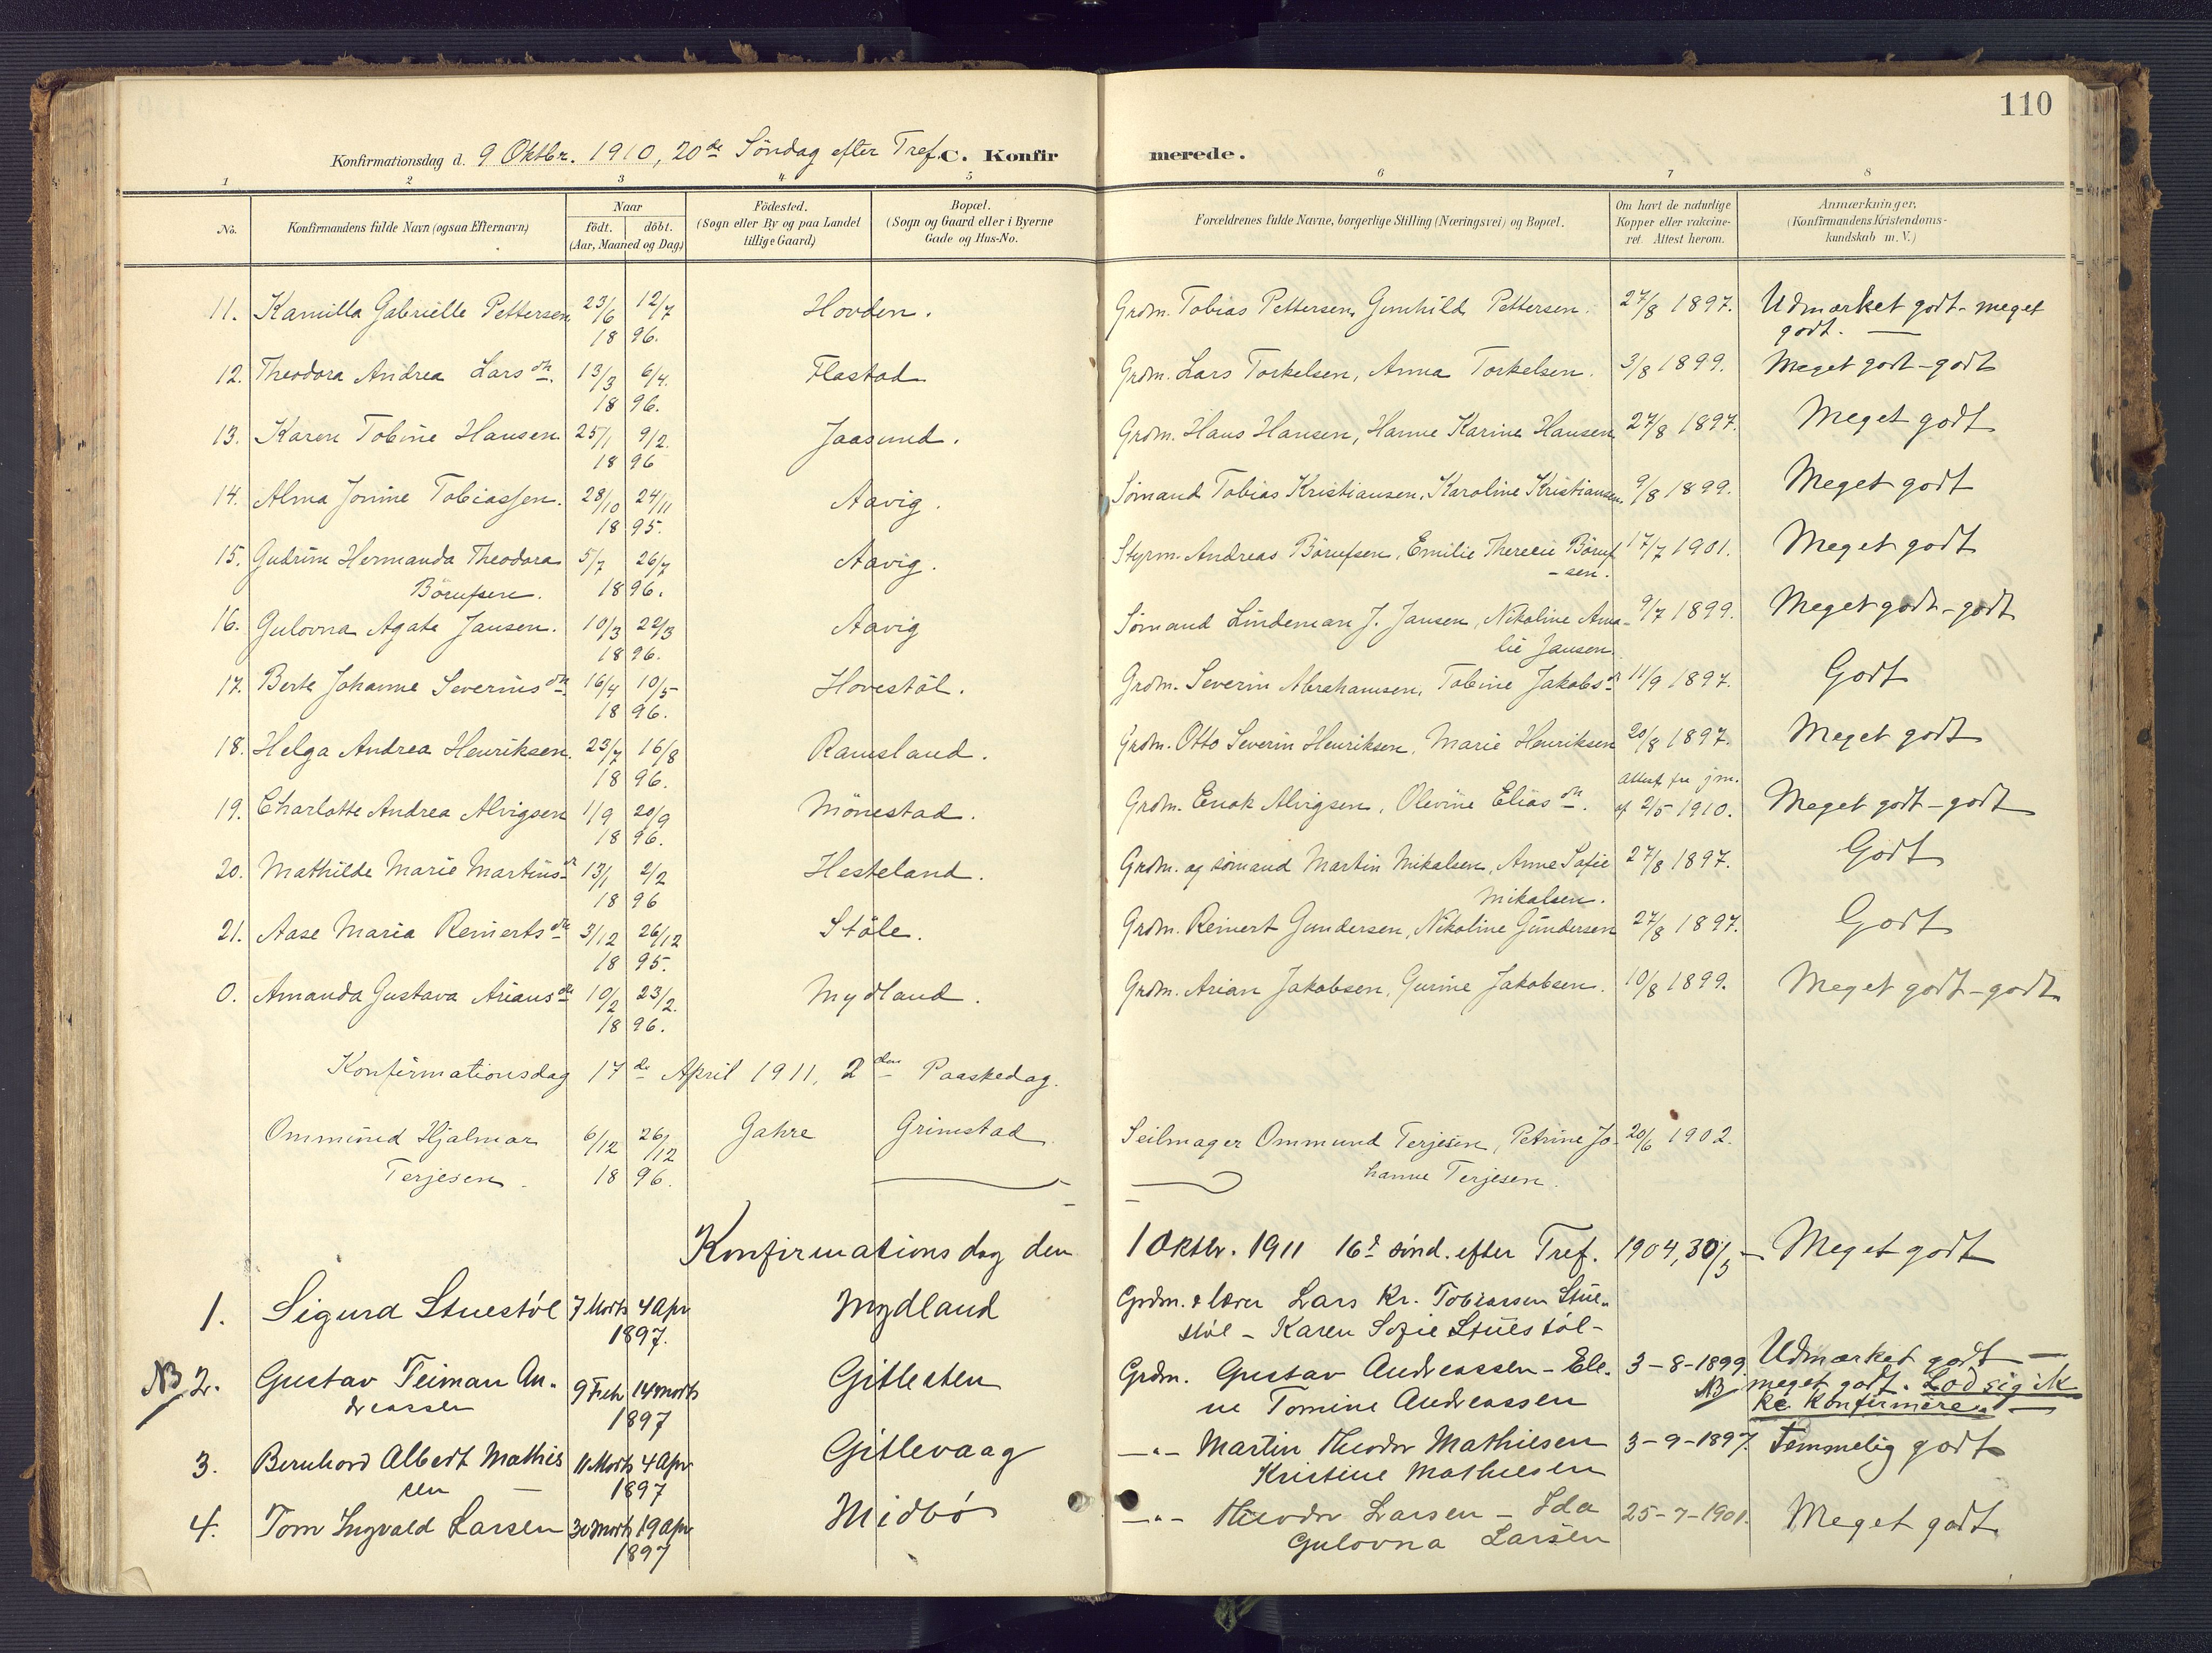 110
Konfirmationsdag d. 9 Oktbr. 1910, 20de Söndag efter Tref. C. Konfirmerede.
1 2 3 4 5 6 7 8
No. Konfirmandens fulde Navn (ogsaa Efternavn) Naar födt. döbt. (Aar, Maaned og Dag) Födested. (Sogn eller By og paa Landet tillige Gaard) Bopæl. (Sogn og Gaard eller i Byerne Gade og Hus-No. Forældrenes fulde Navne, borgerlige Stilling (Næringsvei) og Bopæl. Om havt de naturlige Kopper eller vakcineret. Attest herom. Anmærkninger, (Konfirmandens Kristendomskundskab m. V.)
11. Kamilla Gabrielle Pettersen 23/6 12/7 Hovden. Grdm. Tobias Pettersen, Gunhild Pettersen. 27/8 1897. Udmærket godt - meget
1896. godt. —
12. Theodora Andrea Larsdtr. 13/3 6/4. Flastad Grdm. Lars Torkelsen, Anna Torkelsen. 3/8 1899. Meget godt - godt
1896.
13. Karen Tobine Hansen 25/1 9/2. Jaasund. Grdm. Hans Hansen, Hanne Karine Hansen 27/8 1897. Meget godt
1896
14. Alma Jonine Tobiassen. 28/10 24/11 Aavig. Sömand Tobias Kristiansen, Karoline Kristiansen 9/8 1899. Meget godt
1895.
15. Gudrun Hermanda Theodora 5/7 26/7 Aavig. Styrm. Andreas Börufsen, Emilie Therecie Böruf 17/7 1901. Meget godt
Börufsen. 1896. -sen.
16. Gulovna Agate Jansen. 10/3 22/3 Aavig Sömand Lindeman J. Jansen, Nikoline Ama- 9/7 1899. Meget godt - godt
1896. lie Jansen.
17. Berte Johanne Severinsdtr 16/4 10/5 Hovestöl. Grdm. Severin Abrahamsen, Tobine Jakobsdr 11/9 1897. Godt
1896.
18. Helga Andrea Henriksen. 23/7 16/8 Ramsland. Grdm. Otto Severin Henriksen, Marie Henriksen 20/8 1897. Meget godt
1896.
19. Charlotte Andrea Alvigsen 1/9 20/9 Mönestad. Grdm. Enok Alvigsen, Olevine Eliasdtr. Attest fra jm. af 2/5 1910. Meget godt - godt
1896.
20. Mathilde Marie Martinsdr 13/1 2/2 Hesteland. Grdm. og sömand Martin Mikalsen, Anne Sofie 27/8 1897. Godt
1896 Mikalsen.
21. Aase Maria Reinertsdtr 3/12 26/12 Stöle. Grdm. Reinert Gundersen, Nikoline Gundersen 27/8 1897. Godt
1895.
0. Amanda Gustava Ariansdtr 10/2 23/2. Mydland. Grdm. Arian Jakobsen, Gurine Jakobsen. 10/8 1899. Meget godt - godt
1896.
Konfirmationsdag 17de April 1911, 2den Paaskedag.
Ommund Hjalmar 6/12 26/12 Jahre Grimstad Seilmager Ommund Terjesen, Petrine Jo- 20/6 1902.
Terjesen. 1896. hanne Terjesen.
Konfirmationsdag den 1 Oktbr. 1911 16d sönd. efter Tref. 1904, 30/5 — Meget godt
1. Sigurd Stuestöl 7 Marts 4 Apr Mydland Grdm. & lærer Lars Kr. Tobiassen Stue-
1897. stöl - Karen Sofie Stuestöl -
NB 2. Gustav Teiman An- 9 Febr 14 Marts Gitlesten Grdm. Gustav Andreassen - Ele- 3-8-1899. Udmærket godt —
dreassen 1897 ne Tomine Andreassen NB meget godt. Lod sig ik
ke konfirmere. —
3. Bernhard Albert Mathie 11 Marts 4 Apr Gitlevaag — " — Martin Theodor Mathiesen 3-9-1897. Temmelig godt
sen — 1897 Kristine Mathiesen
4. Tom Ingvald Larsen 30 Marts 19 Apr Midbö — " — Theodor Larsen - Ida 25-7-1901. Meget godt.
1897 Gulovna Larsen